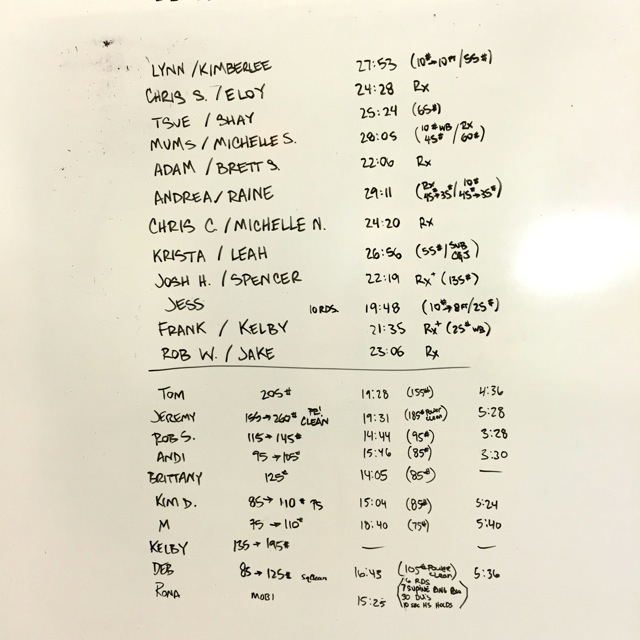 LYNN / KIMBERLEE 27:53 (10#→10FT/55#)
CHRIS S. / ELOY 24:28 Rx
TSUE / SHAY 25:24 (65#)
MUMS / MICHELLE S. 28:05 (10# WB 45# / Rx 60#)
ADAM / BRETT S. 22:06 Rx
ANDREA / RAINE 29:11 (Rx 45#→35# / 10# 45#→35#)
CHRIS C. / MICHELLE N. 24:20 Rx
KRISTA / LEAH 26:56 (55#/SUB C&J)
JOSH H. / SPENCER 22:19 Rx+ (135#)
JESS 10 RDS. 19:48 (10#→8FT/25#)
FRANK / KELBY 21:35 Rx+ (25# WB)
ROB W. / JAKE 23:06 Rx
TOM 205# 19:28 (155#) 4:36
JEREMY 155→260# PB! CLEAN 19:31 (185# POWER CLEAN) 5:28
ROB S. 115→145# 14:44 (95#) 3:28
ANDI 95→105# 15:46 (85#) 3:30
BRITTANY 125# 14:05 (85#) —
KIM D. 85→110# 75 15:04 (85#) 5:24
M 75→110# 18:40 (75#) 5:40
KELBY 135→195# — —
DEB 85→125# 16:43 (105# POWER CLEAN) 5:36
RONA MOBI 15:25 (6 RDS
7 SUPINE RING
30 DU'S
10 SEC HS HOLDS)